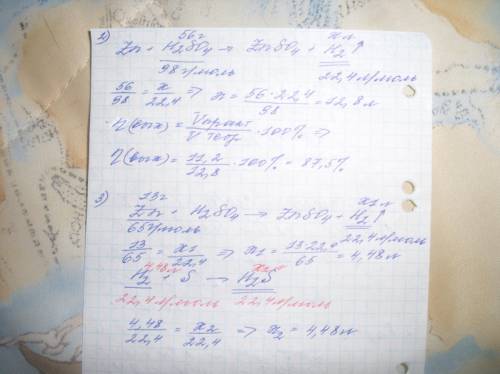 2) 56г x л
Zn + H2SO4 → ZnSO4 + H2↑
98 г/моль 22,4 л/моль
56/98 = x/22,4 ⇒ x = 56·22,4/98 = 12,8 л
η(вых) = Vпракт/Vтеор · 100% ⇒
η(вых) = 11,2/12,8 · 100% = 87,5%
3) 13г x1 л
Zn + H2SO4 → ZnSO4 + H2↑
65 г/моль 22,4 л/моль
13/65 = x1/22,4 ⇒ x1 = 13·22,4/65 = 4,48 л
4,48 л x2 л
H2 + S → H2S
22,4 л/моль 22,4 л/моль
4,48/22,4 = x2/22,4 ⇒ x2 = 4,48 л